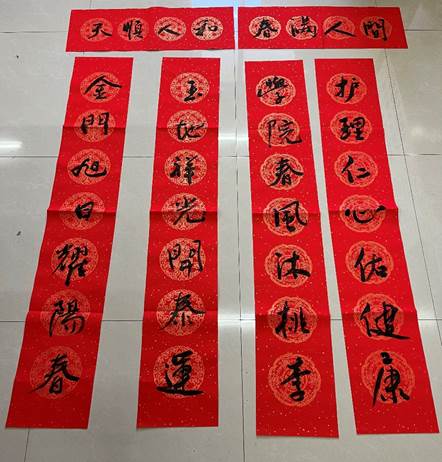 天順人和
春滿人間
金門旭日耀陽春
玉地祥光開泰運
學院春風沐桃李
护理仁心佑健康